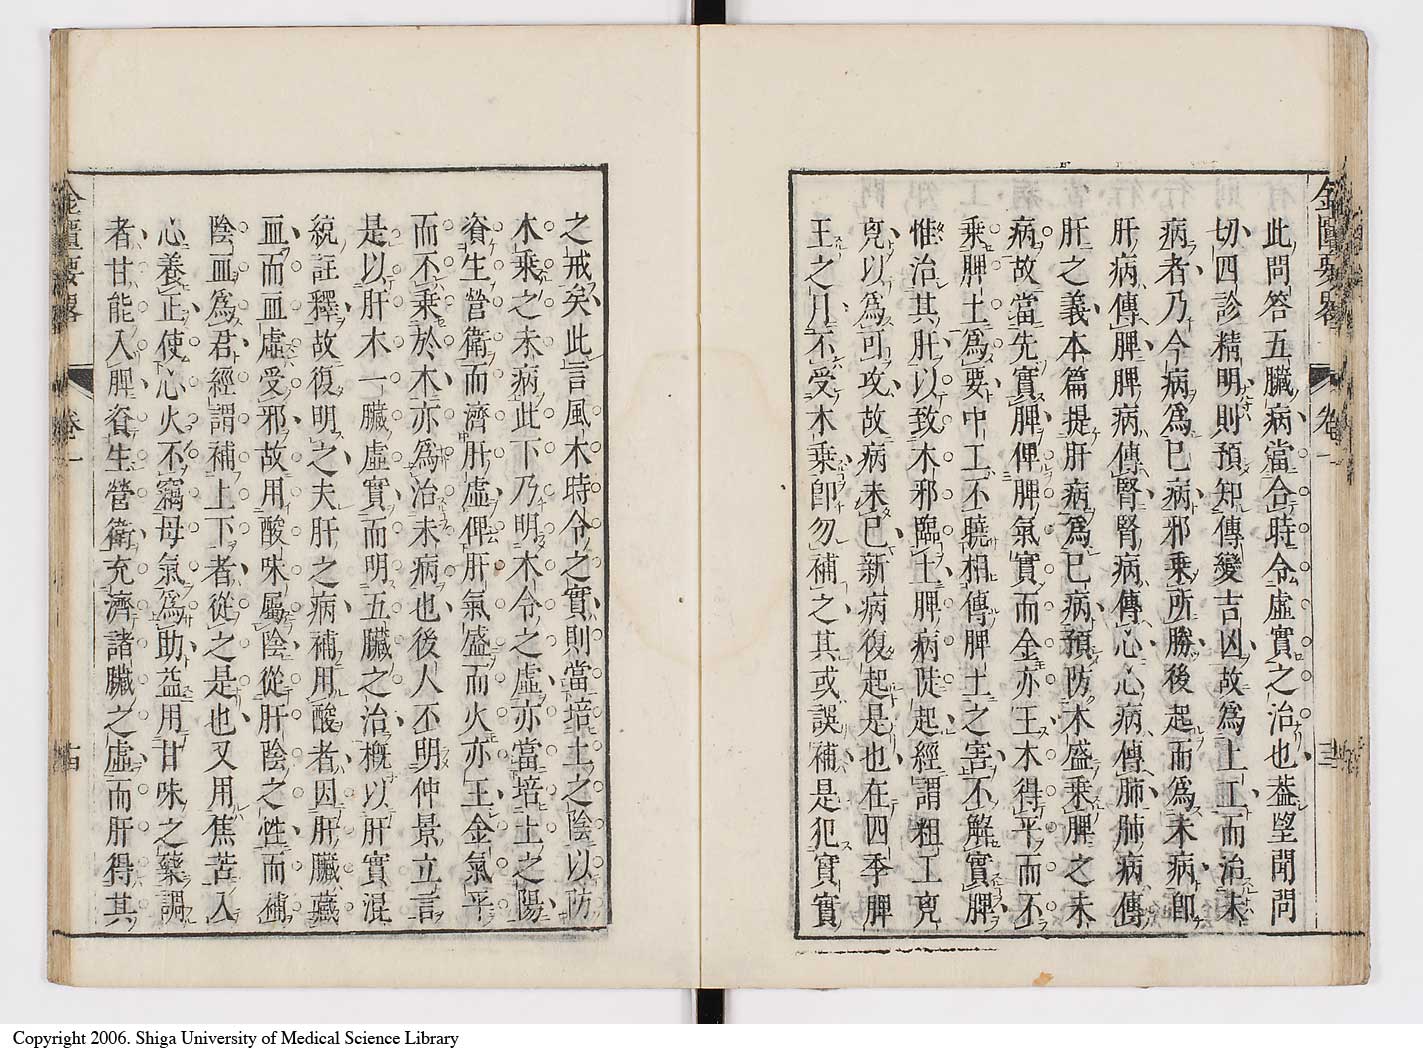 金匱要畧
卷一
此問答五臟病當合時令虛實之治也葢望聞問
切四診精明則預知傳變吉凶故爲上工而治未
病者乃今病爲已病邪乘所勝後起而爲未病卽
肝病傳脾脾病傳腎腎病傳心心病傳肺肺病傳
肝之義本篇提肝病爲已病預防木盛乘脾之未
病故當先實脾俾脾氣實而金亦王木得平而不
乘脾土爲要中工不曉相傳脾土之害不解實脾
惟治其肝以致木邪臨土脾病陡起經謂粗工兇
兇以爲可攻故病未已新病復起是也在四季脾
王之月不受木乘卽勿補之其或誤補是犯實實
之戒矣此言風木時令之實則當培土之陰以防
木乘之未病此下乃明木令之虛亦當培土之陽
資生營衛而濟肝虛俾肝氣盛而火亦王金氣平
而不乘於木亦爲治未病也後人不明仲景立言
是以肝木一臟虛實而明五臟之治槪以肝實混
統註釋故復明之夫肝之病補用酸者因肝臟藏
血而血虛受邪故用酸味屬陰從肝陰之性而補
陰血爲君經謂補上下者從之是也又用焦苦入
心養正使心火不竊母氣爲助益用甘味之藥調
者甘能入脾資生營衛充濟諸臟之虛而肝得其
金匱要畧
卷一
十四
Copyright 2006. Shiga University of Medical Science Library